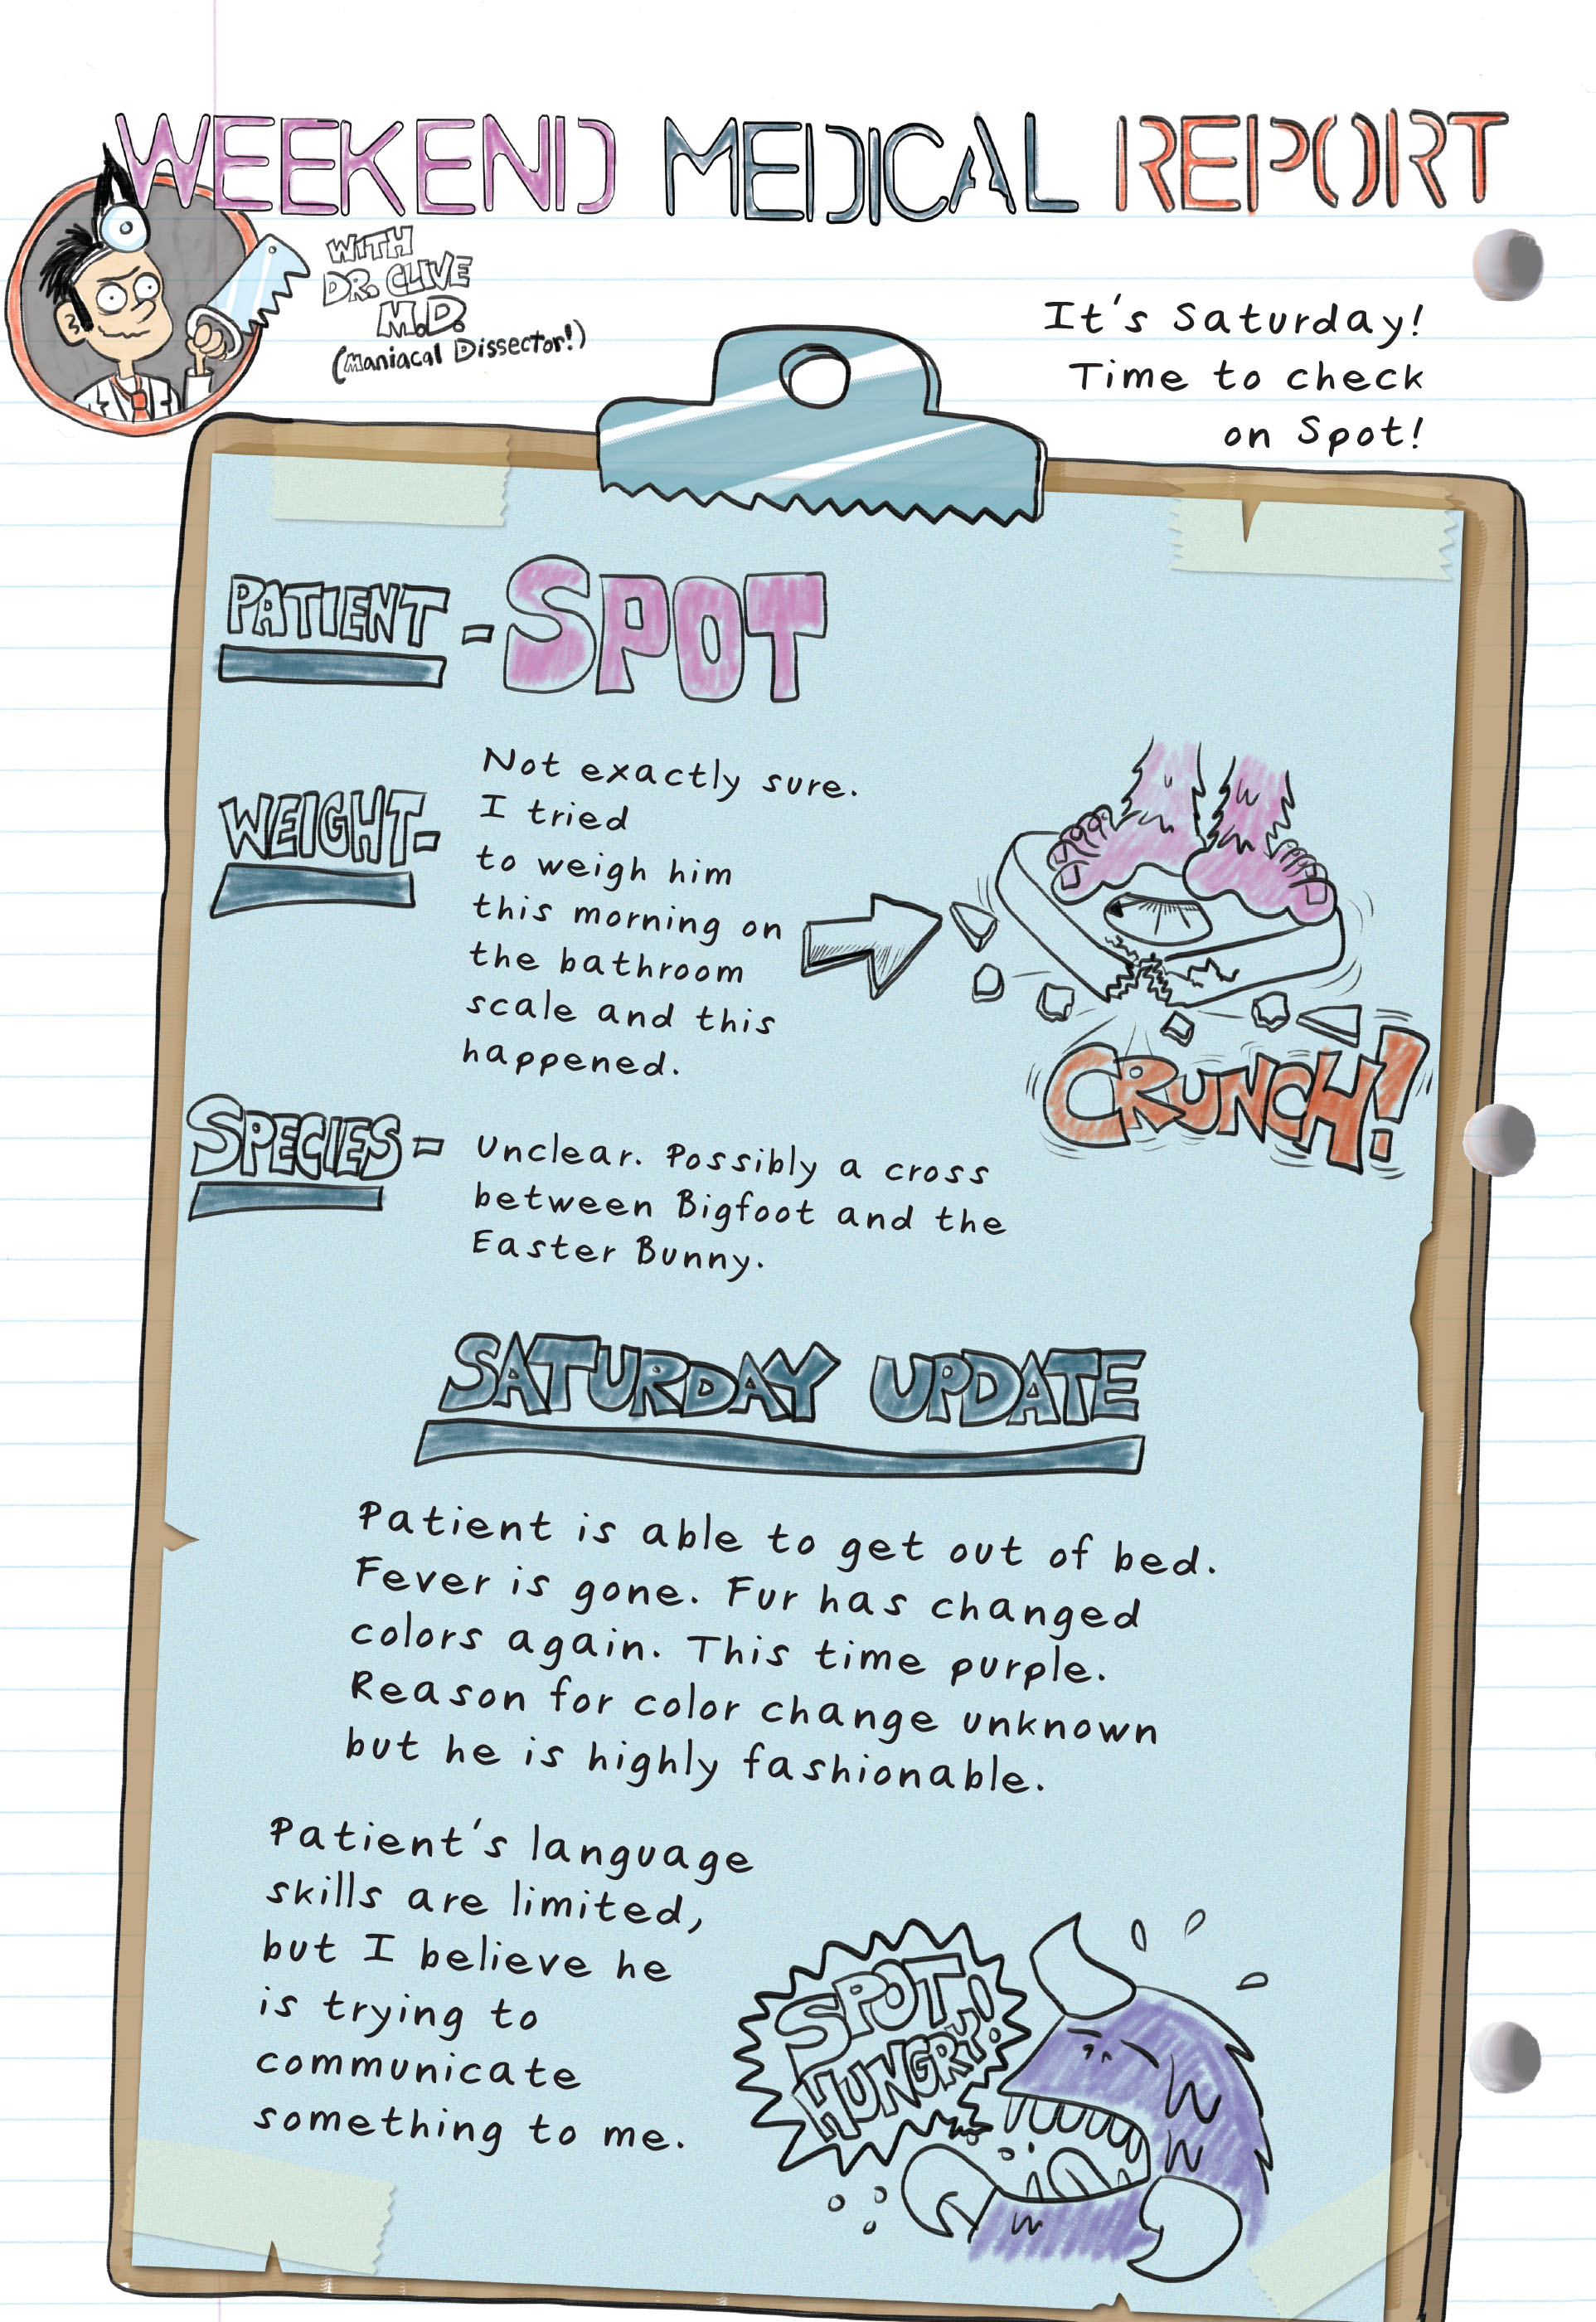 WEEKEND MEDICAL REPORT
WITH
DR. CLIVE
M.D.
(Maniacal Dissector!)
It's Saturday!
Time to check
on Spot!
PATIENT - SPOT
WEIGHT-
Not exactly sure.
I tried
to weigh him
this morning on
the bathroom
scale and this
happened.
CRUNCH!
SPECIES -
Unclear. Possibly a cross
between Bigfoot and the
Easter Bunny.
SATURDAY UPDATE
Patient is able to get out of bed.
Fever is gone. Fur has changed
colors again. This time purple.
Reason for color change unknown
but he is highly fashionable.
Patient's language
skills are limited,
but I believe he
is trying to
communicate
something to me.
SPOT
HUNGRY!